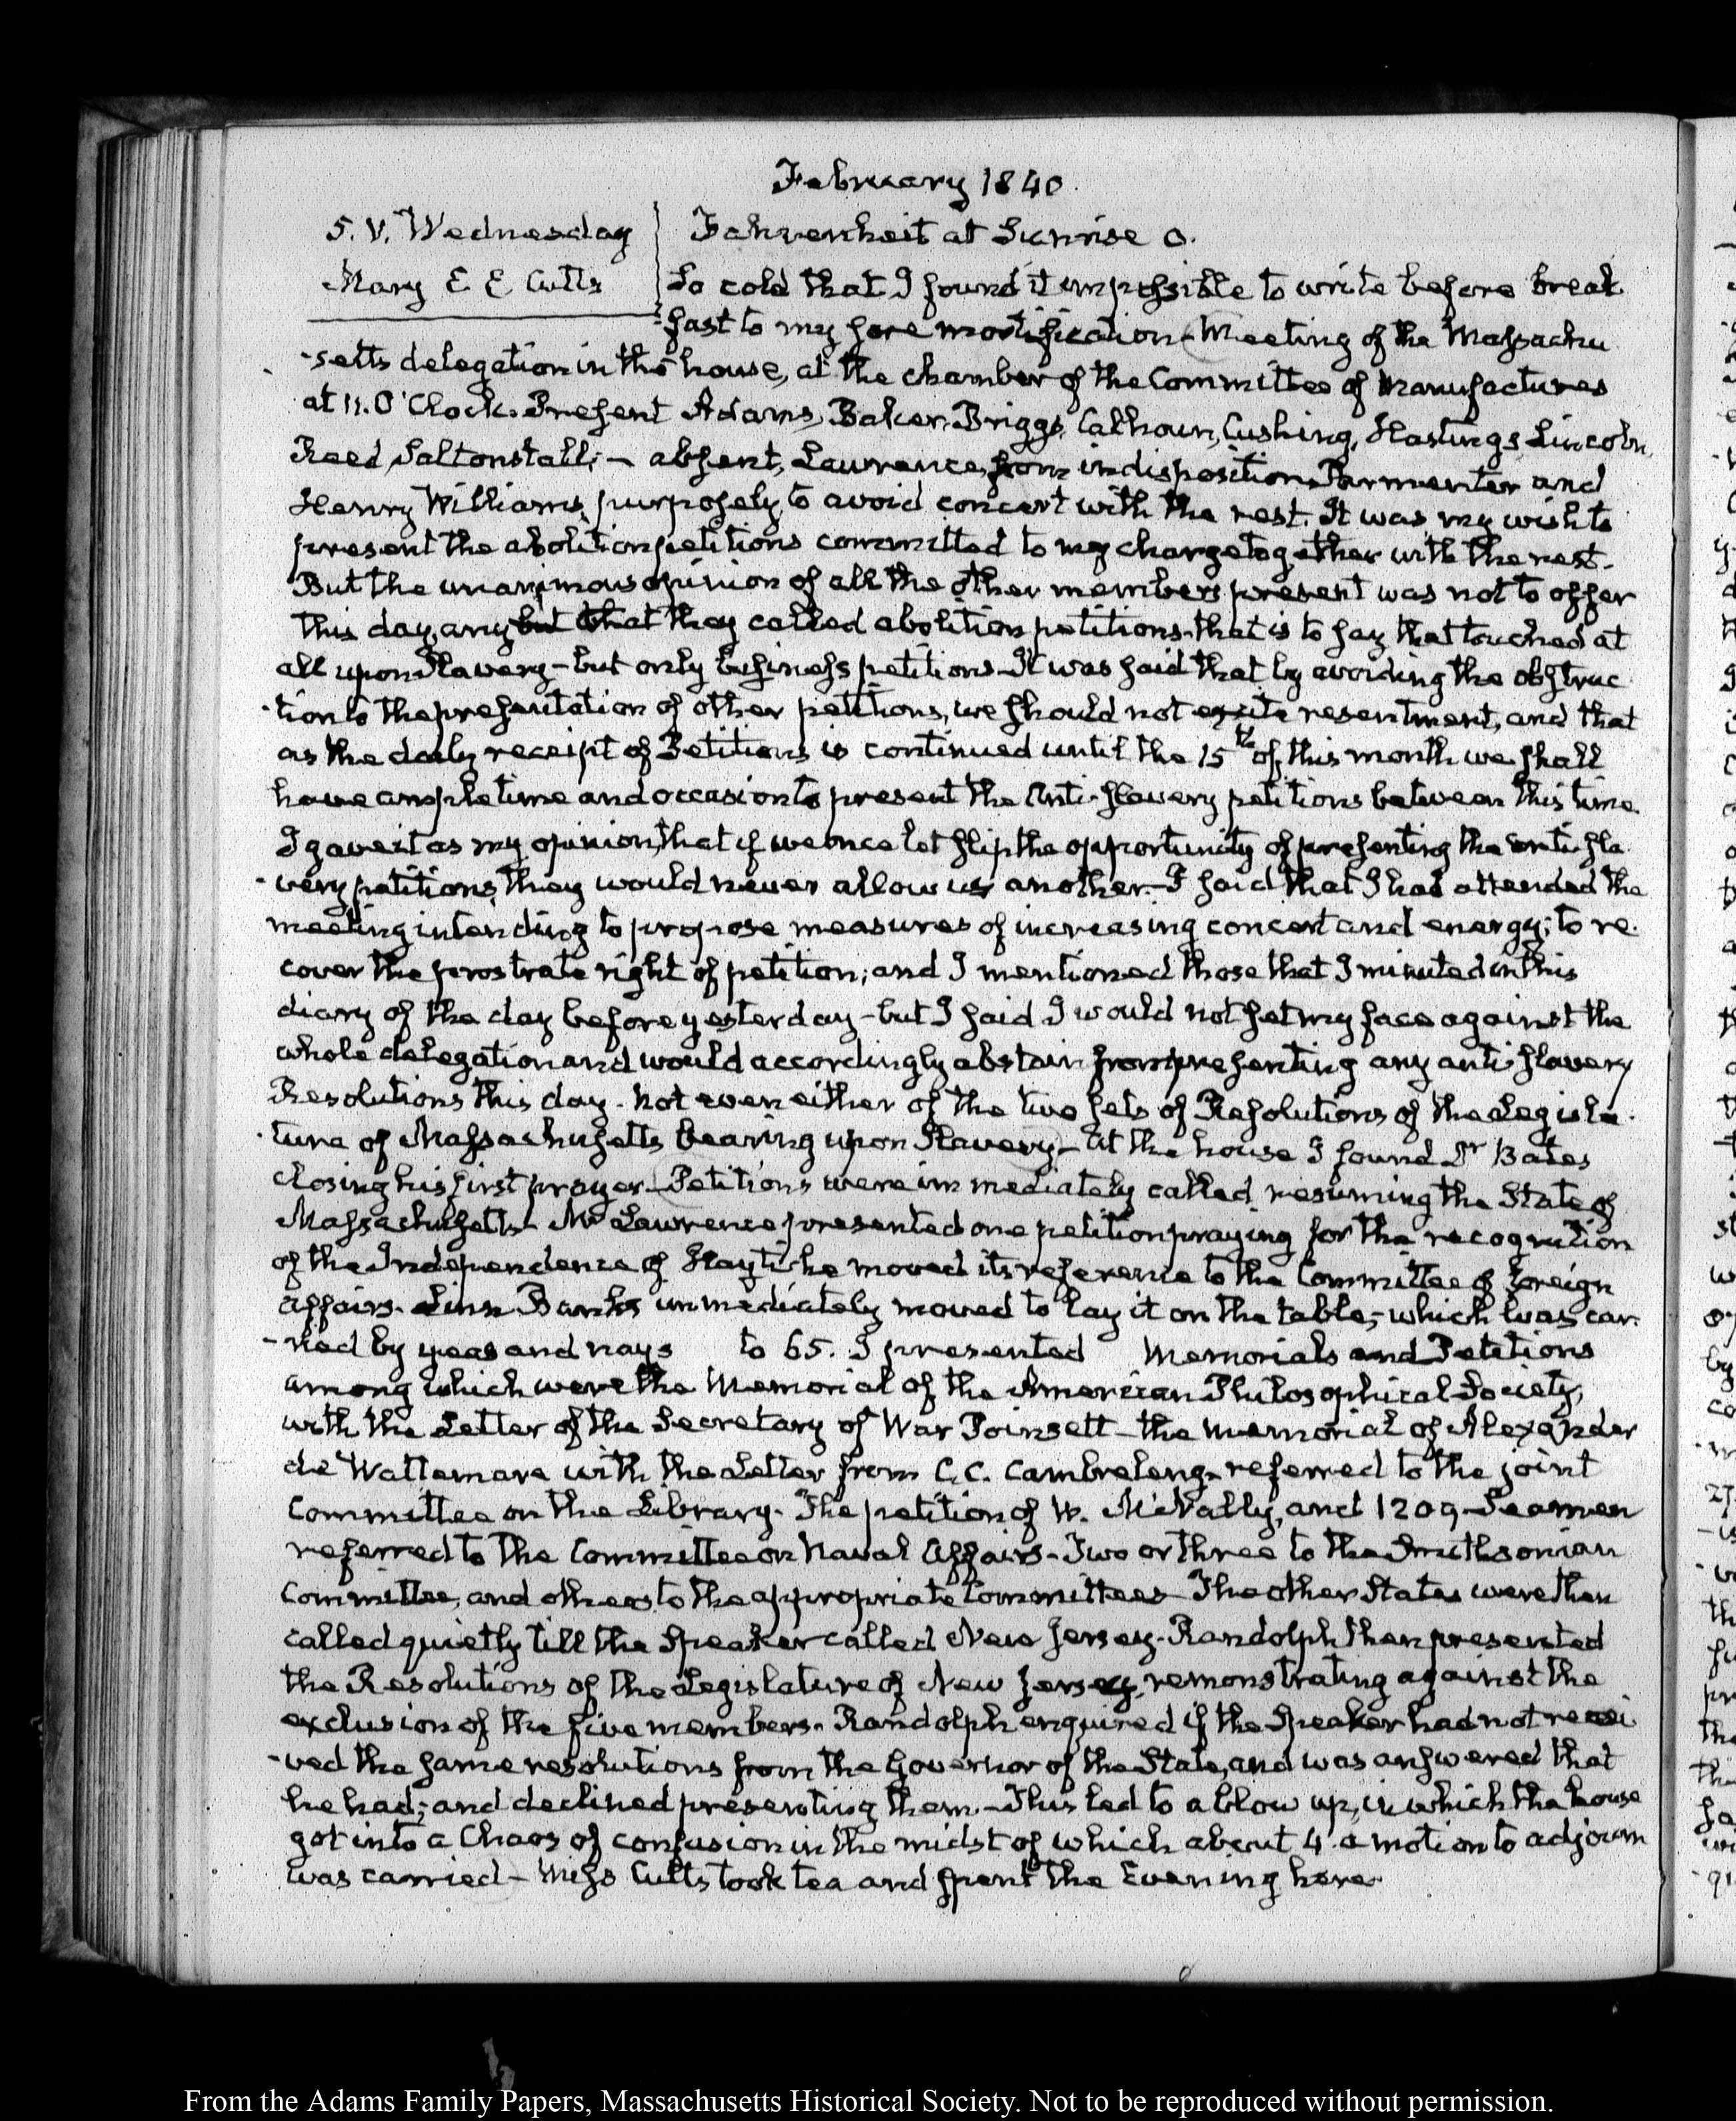 February 1840.
5. V. Wednesday
Mary E E Cutts
Fahrenheit at Sunrise 0.
So cold that I found it impossible to write before break
-fast to my sore mortification - Meeting of the Massachu
-setts delegation in the house, at the chamber of the Committee of Manufactures
at 11. O'Clock. Present Adams, Baker, Briggs, Calhoun, Cushing, Hastings Lincoln,
Reed, Saltonstall; - absent, Lawrence, from indisposition, Parmenter and
Henry Williams, purposely to avoid concert with the rest. It was my wish to
present the abolition petitions committed to my charge together with the rest.
But the unanimous opinion of all the other members present was not to offer
this day, any but that they called abolition petitions - that is to say that touched at
all upon Slavery - but only business petitions - It was said that by avoiding the obstruc
-tion to the presentation of other petitions, we should not excite resentment, and that
as the daily receipt of Petitions is continued until the 15th of this month we shall
have ample time and occasion to present the Anti-slavery petitions between this time.
I gave it as my opinion, that if we once let slip the opportunity of presenting the anti-sla
-very petitions, they would never allow us another. - I said that I had attended the
meeting intending to propose measures of increasing concert and energy; to re-
cover the prostrate right of petition; and I mentioned those that I minuted in this
diary of the day before yesterday - but I said I would not set my face against the
whole delegation and would accordingly abstain from presenting any anti-slavery
Resolutions this day. not even either of the two sets of Resolutions of the Legisla-
-ture of Massachusetts bearing upon Slavery - At the house I found Dr Bates
closing his first prayer - Petitions were immediately called, resuming the State of
Massachusetts - Mr Lawrence presented one petition praying for the recognition
of the Independence of Hayti - he moved its reference to the Committee of foreign
affairs. Linn Banks immediately moved to lay it on the table, - which was car-
-ried by yeas and nays to 65. I presented Memorials and Petitions
among which were the Memorial of the American Philosophical Society,
with the Letter of the Secretary of War Poinsett - the memorial of Alexander
de Wattemare with the Letter from C. C. Cambreleng - referred to the joint
Committee on the Library. The petition of W. McNally, and 1209 Seamen
referred to the Committee on Naval Affairs - Two or three to the Smithsonian
Committee, and others to the appropriate Committees - The other States were then
called quietly till the Speaker called New Jersey - Randolph then presented
the Resolutions of the Legislature of New Jersey, remonstrating against the
exclusion of the five members. Randolph enquired if the Speaker had not recei
-ved the same resolutions from the Governor of the State, and was answered that
he had; and declined presenting them. - This led to a blow up, in which the house
got into a Chaos of confusion in the midst of which about 4. a motion to adjourn
was carried - Miss Cutts took tea and spent the Evening here.
From the Adams Family Papers, Massachusetts Historical Society. Not to be reproduced without permission.